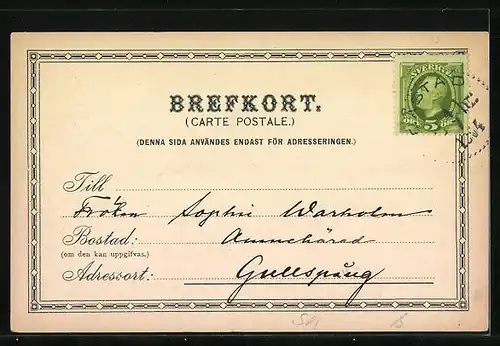 SVERIGE
5 ÖRE 5 ÖRE
BREFKORT.
(CARTE POSTALE.)
(DENNA SIDA ANVÄNDES ENDAST FÖR ADRESSERINGEN.)
Till
Fröken Sophie Warholm
Bostad: Amnehärad
(om den kan uppgifvas.)
Adressort: Gullspång